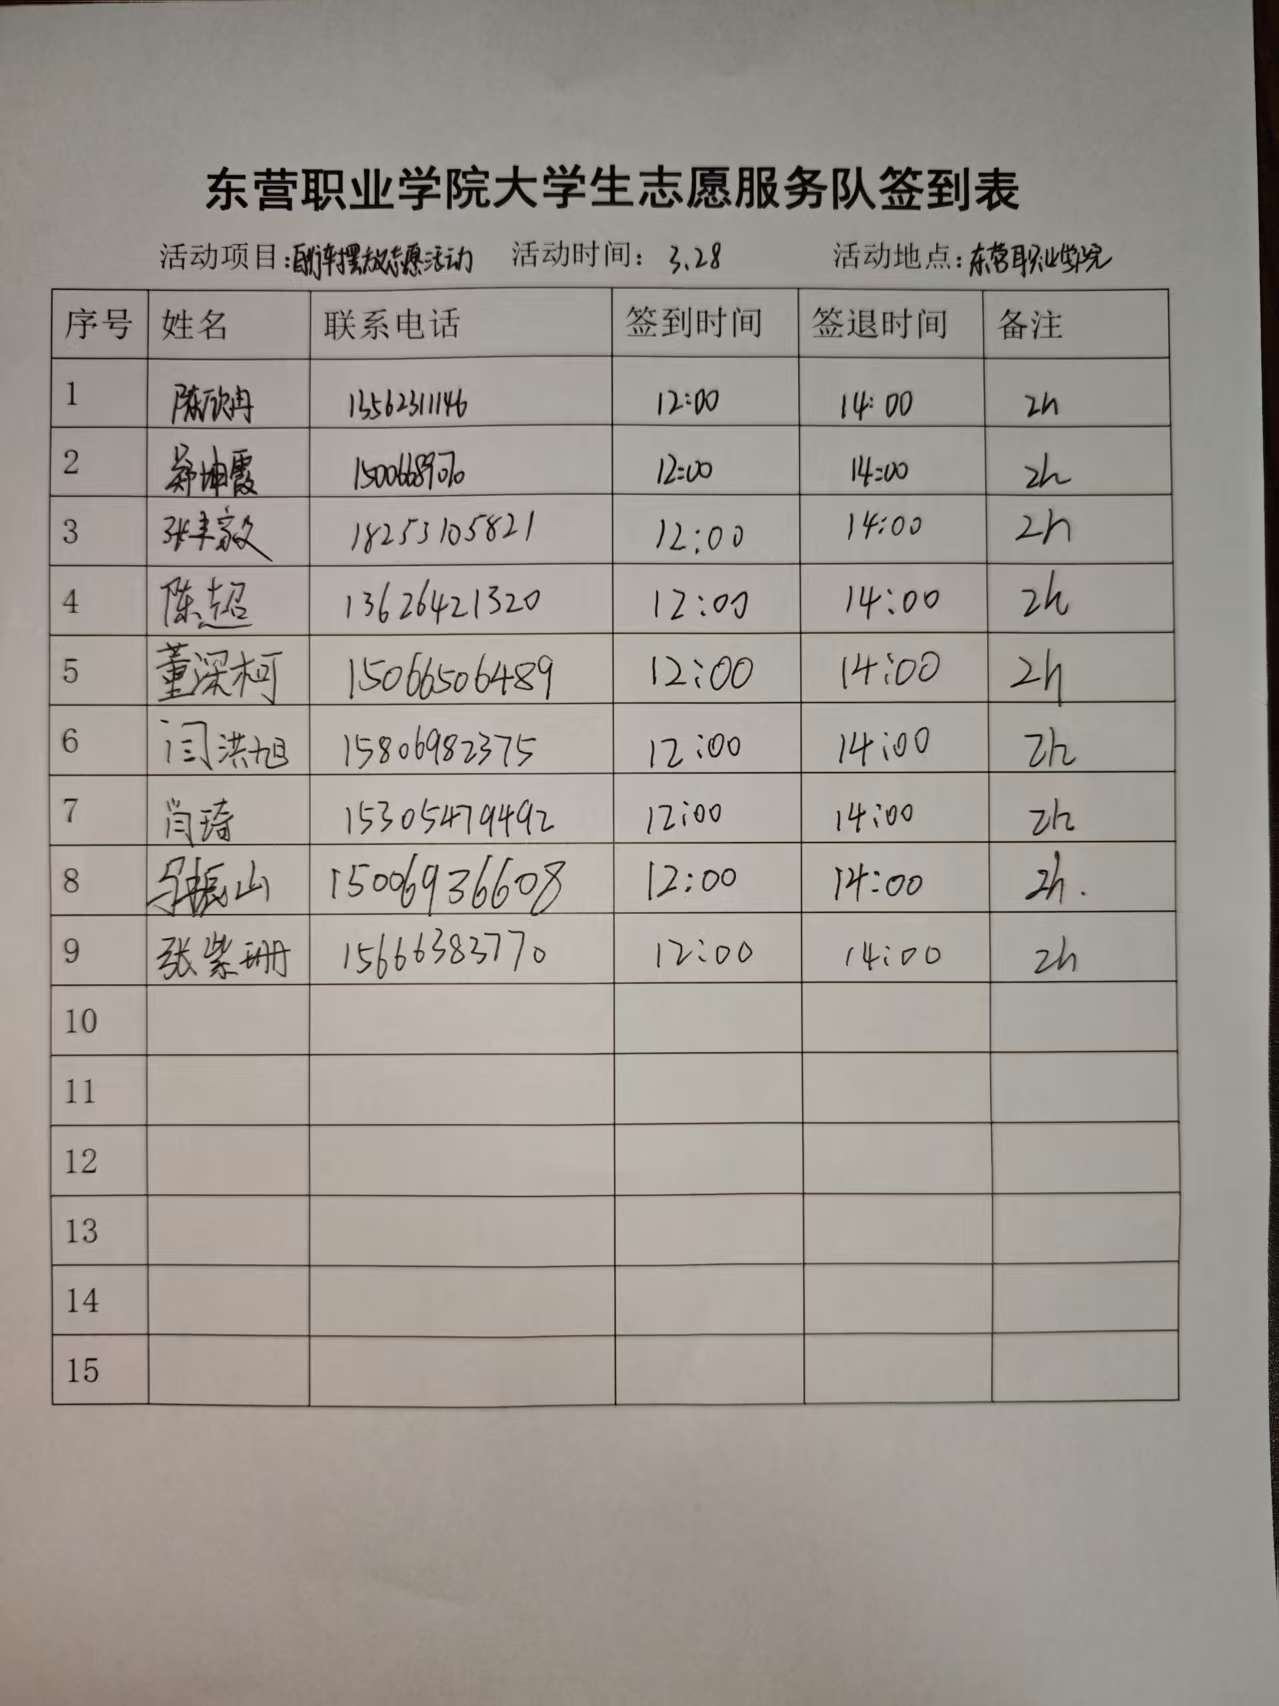 东营职业学院大学生志愿服务队签到表
活动项目:自行车摆放志愿活动 活动时间: 3.28 活动地点:东营职业学院
序号 姓名 联系电话 签到时间 签退时间 备注
1 陈欣冉 13562311146 12:00 14:00 2h
2 郑坤霞 12:00 14:00 2h
3 18253105821 12:00 14:00 2h
4 陈超 13626421320 12:00 14:00 2h
5 董深柯 15066506489 12:00 14:00 2h
6 闫洪旭 15806982375 12:00 14:00 2h
7 闫琦 15305479492 12:00 14:00 2h
8 振山 15006936608 12:00 14:00 2h.
9 张紫珊 15666383770 12:00 14:00 2h
10
11
12
13
14
15